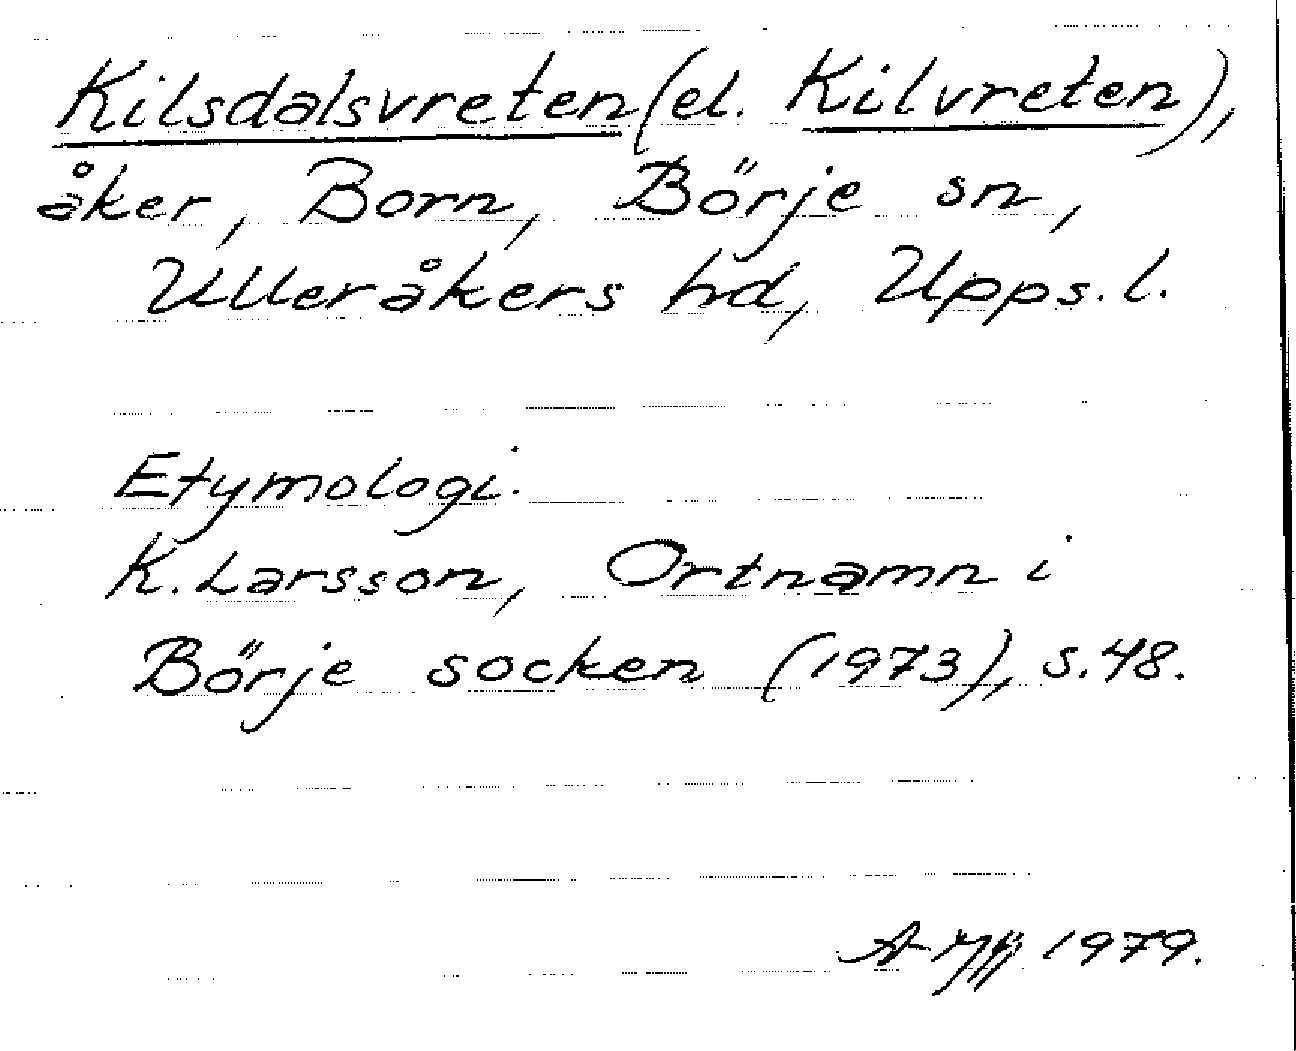 Kilsdalsvreten (el. Kilvreten),
åker, Born, Börje sn,
Ulleråkers hd, Upps. l.
Etymologi.
K. Larsson, Ortnamn i
Börje socken (1973), s. 48.
1979.